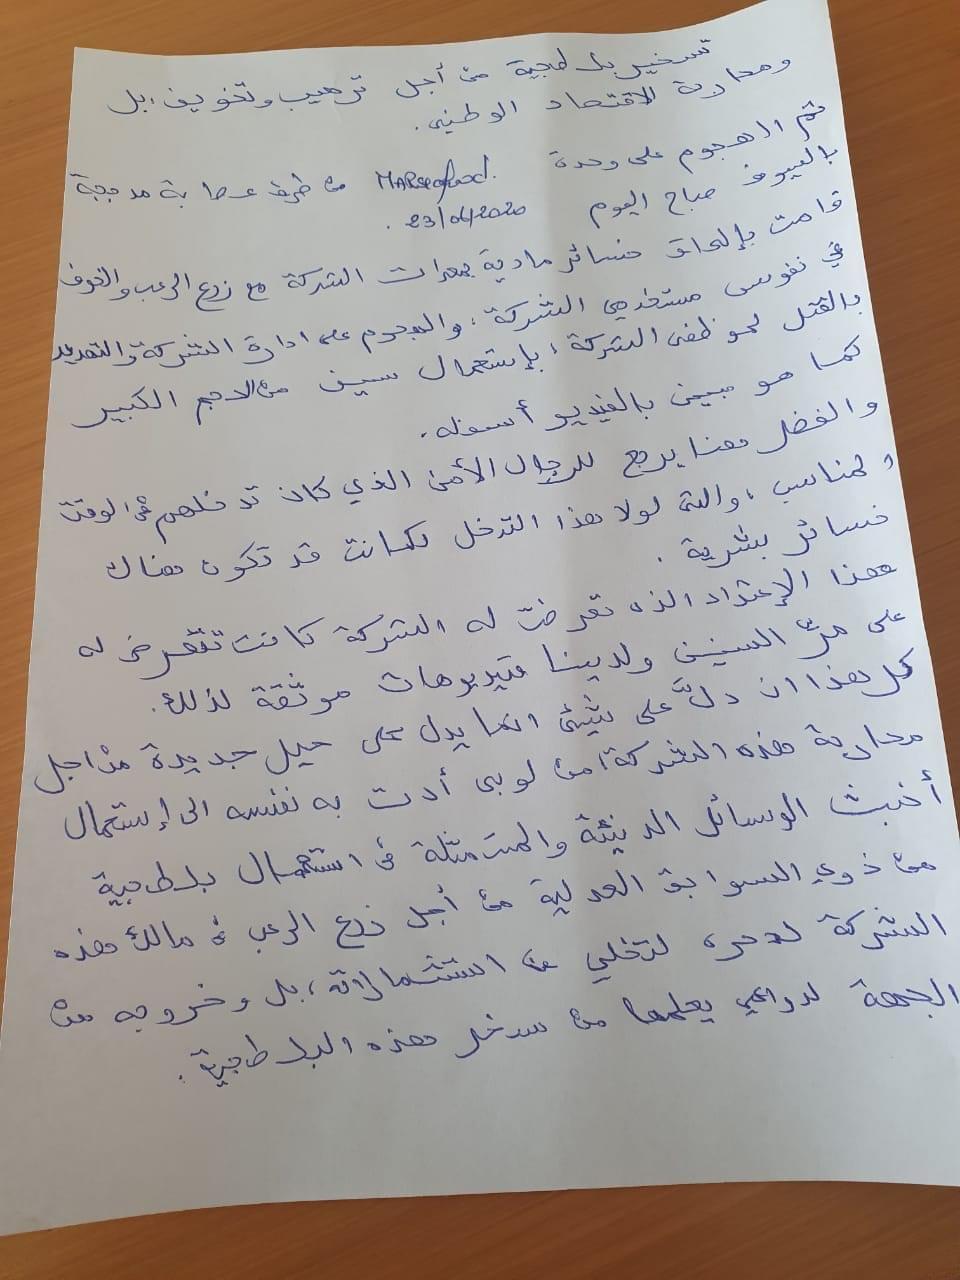 تسخير بلطجية من أجل ترهيب وتخويف، بل
ومحاربة الاقتصاد الوطني.
تم الهجوم على وحدة MARSEAfood من طرف عصابة مدججة
بالسيوف صباح اليوم 23/06/2020.
قامت بإلحاق خسائر مادية بمعدات الشركة مع زرع الرعب والخوف
في نفوس مستخدمي الشركة، والهجوم على ادارة الشركة والتهديد
بالقتل لموظفي الشركة، بإستعمال سيف من الحجم الكبير
كما هو مبين بالفيديو أسفله.
والفضل هنا يرجع للرجال الأمن الذي كان تدخلهم في الوقت
المناسب، والتي لولا هذا التدخل لكانت قد تكون هناك
خسائر بشرية.
هذا الإعتداء الذي تعرضت له الشركة كانت تتعرض له
على مرّ السنين ولدينا فيديوهات موثقة لذلك.
كل هذا ان دلّ على شيئ انما يدل على حيل جديدة من اجل
محاربة هذه الشركة من لوبي أدت به نفسه الى إستعمال
أخبث الوسائل الدنيئة والمتمثلة في استعمال بلطجية
من ذوي السوابق العدلية من أجل زرع الرعب في مالك هذه
الشركة لتخلي عن استثماراته، بل وخروجه من
الجهة لدواعي يعلمها من سخر هذه البلطجية.